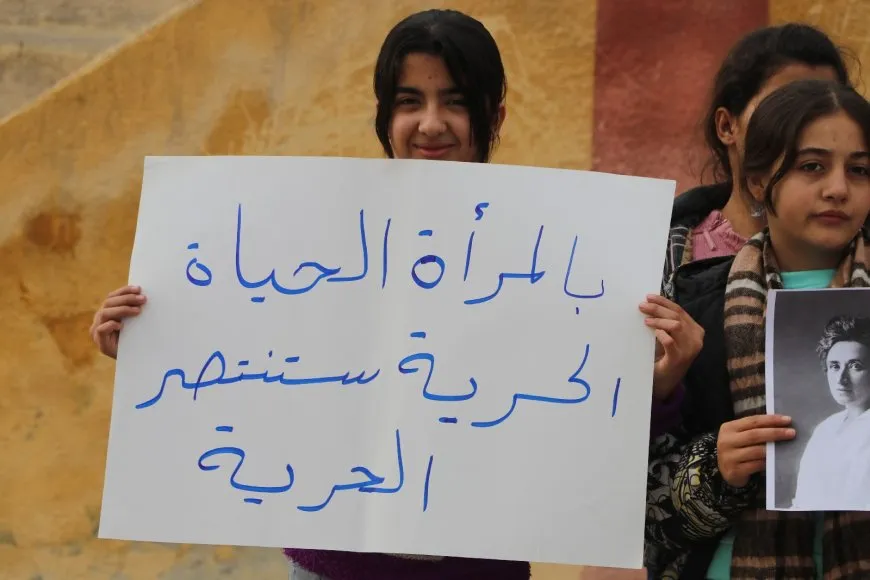 بالمرأة الحياة
الحرية ستنتصر
الحرية